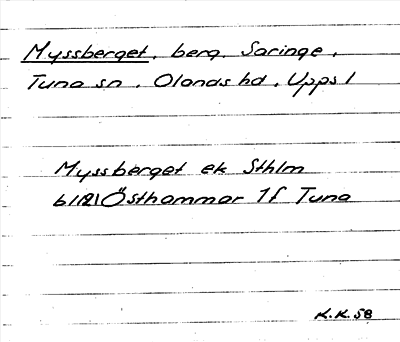 Myssberget, berg. Saringe,
Tuna sn. Olands hd. Upps l
Myssberget ek Sthlm
Östhammar 1f Tuna
K.K. 58